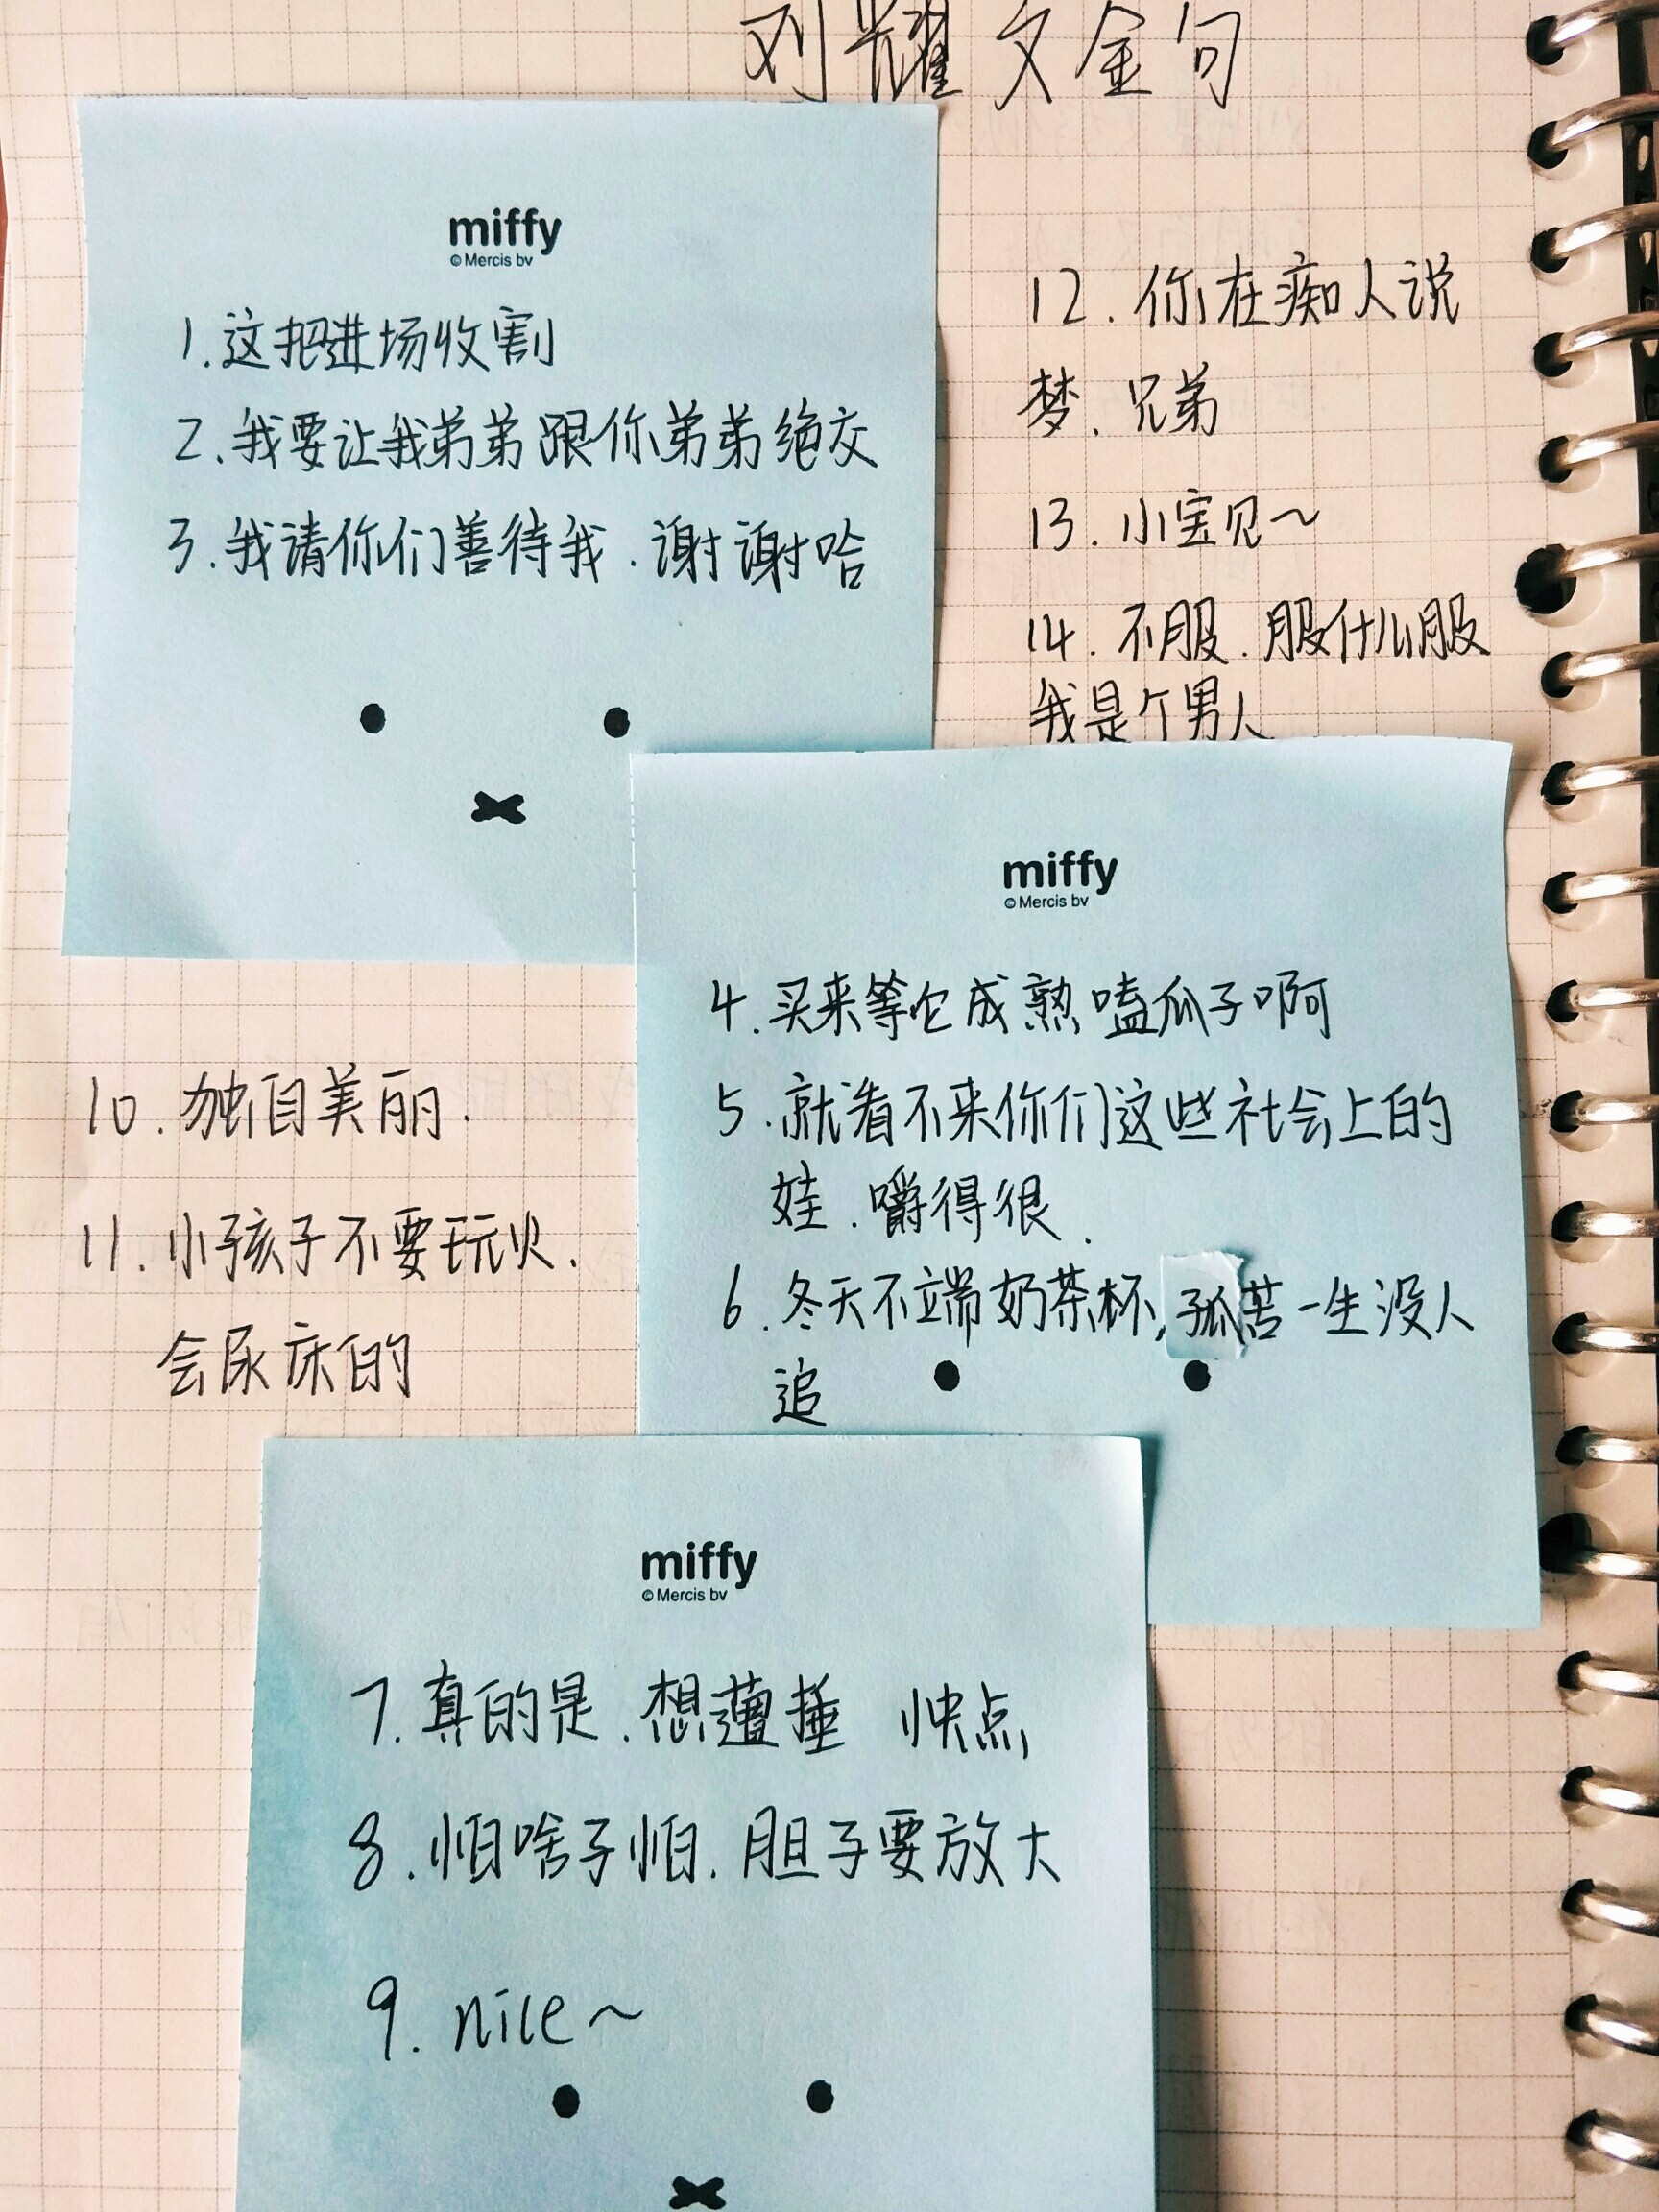 刘耀文金句
miffy
© Mercis bv
1.这把进场收割
2.我要让我弟弟跟你弟弟绝交
3.我请你们善待我.谢谢哈
12.你在痴人说
梦、兄弟
13.小宝贝~
14.不服.服什么服
我是个男人
miffy
© Mercis bv
4.买来等它成熟嗑瓜子啊
5.就看不来你们这些社会上的
娃.嚼得很.
6.冬天不端奶茶杯,孤苦一生没人
追
10.独自美丽.
11.小孩子不要玩火.
会尿床的
miffy
© Mercis bv
7.真的是.想遭捶 快点
8.怕啥子怕.胆子要放大
9.nice~